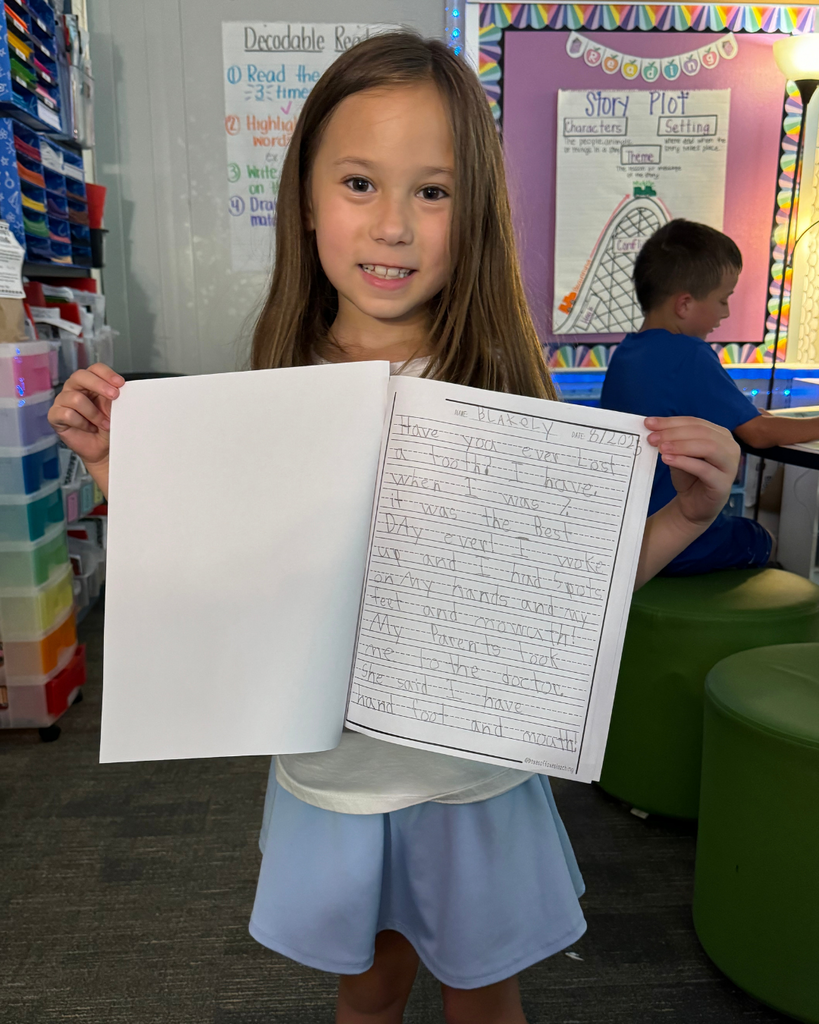 Decodable Rea
① Read the
3 time
② Highlig
words
ex
③ Write
on t
④ Dra
mat
Reading
Story Plot
Characters
Setting
The people, animals,
or things in a story
where and when the
story takes place.
Theme
The lesson or message
of the story
Confl
NAME: BLAKELY DATE: 8/2025
Have you ever Lost
a tooth? I have.
when I was 7.
it was the Best
DAy ever! I woke
up and I had spots
on My hands and my
feet and mowuth!
My Parents took
me to the doctor.
She said I have
hand foot and mouth!